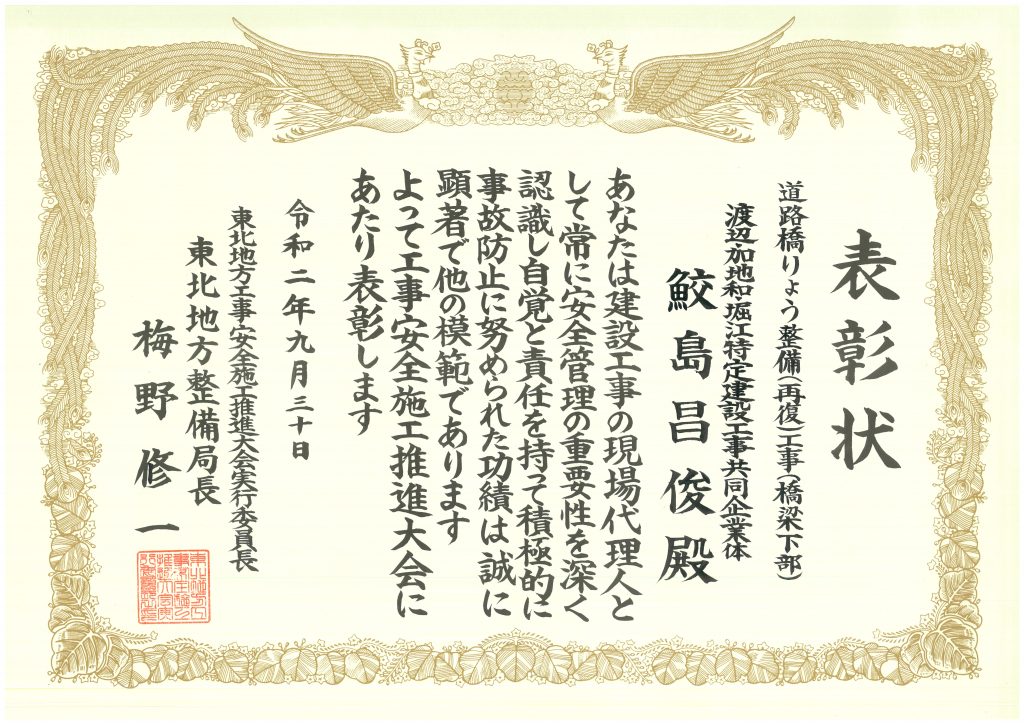 表彰状
道路橋りょう整備(再復)工事(橋梁下部)
渡辺・加地和・堀江特定建設工事共同企業体
鮫島昌俊殿
あなたは建設工事の現場代理人と
して常に安全管理の重要性を深く
認識し自覚と責任を持って積極的に
事故防止に努められた功績は誠に
顕著で他の模範であります
よって工事安全施工推進大会に
あたり表彰します
令和二年九月三十日
東北地方工事安全施工推進大会実行委員長
東北地方整備局長
梅野修一